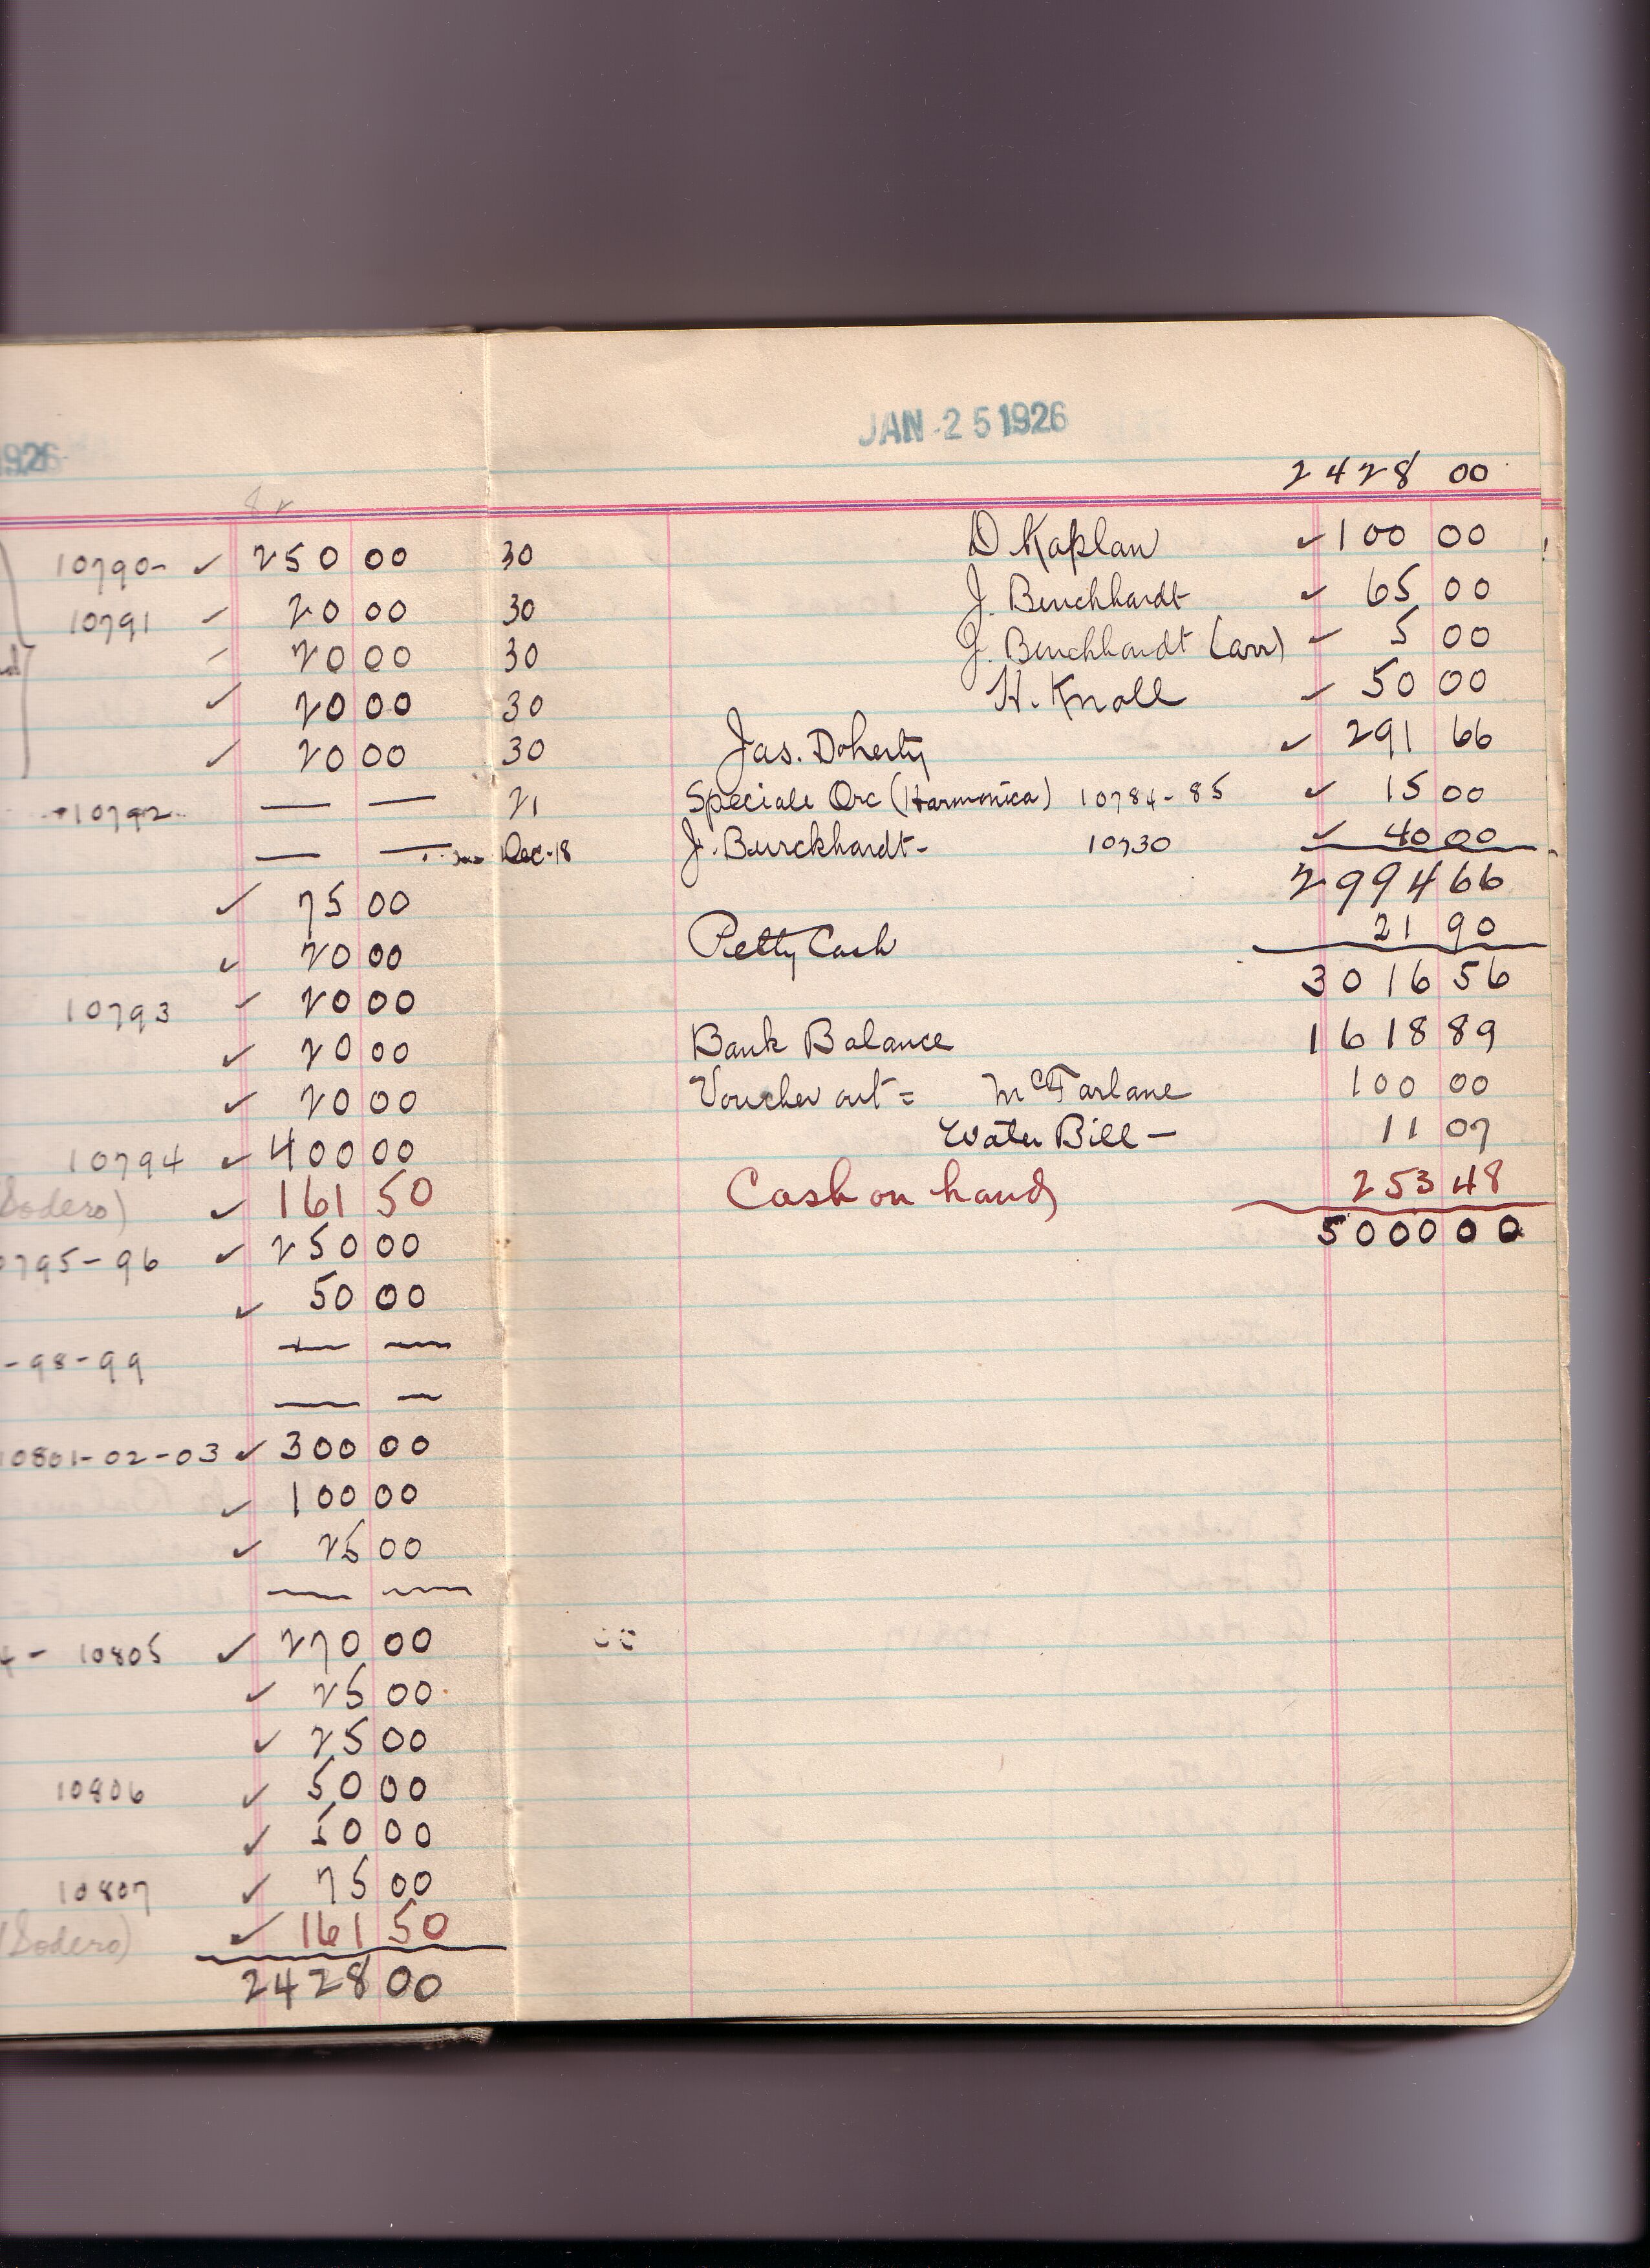 1926
10790- ✓ 250 00
10791 ✓ 20 00
✓ 20 00
✓ 20 00
✓ 20 00
10792 — —
— —
✓ 75 00
✓ 20 00
10793 ✓ 20 00
✓ 20 00
✓ 20 00
10794 ✓ 400 00
Sodero) ✓ 161 50
0795-96 ✓ 250 00
✓ 50 00
-98-99 — —
— —
10801-02-03 ✓ 300 00
✓ 100 00
✓ 25 00
— —
4- 10805 ✓ 270 00
✓ 25 00
✓ 25 00
10806 ✓ 50 00
✓ 50 00
10807 ✓ 75 00
(Sodero) ✓ 161 50
2428 00
JAN 25 1926
2428 00
30 D Kaplan ✓ 100 00
30 J. Burchhardt ✓ 65 00
30 J. Burchhardt (arr) ✓ 5 00
30 H. Knoll ✓ 50 00
30 Jas. Doherty ✓ 291 66
21 Speciale Orc (Harmonica) 10784-85 ✓ 15 00
Dec-18 J. Burckhardt- 10730 ✓ 40 00
2994 66
Petty Cash 21 90
3016 56
Bank Balance 1618 89
Voucher out = McFarlane 100 00
Water Bill — 11 07
Cash on hand 253 48
5000 00